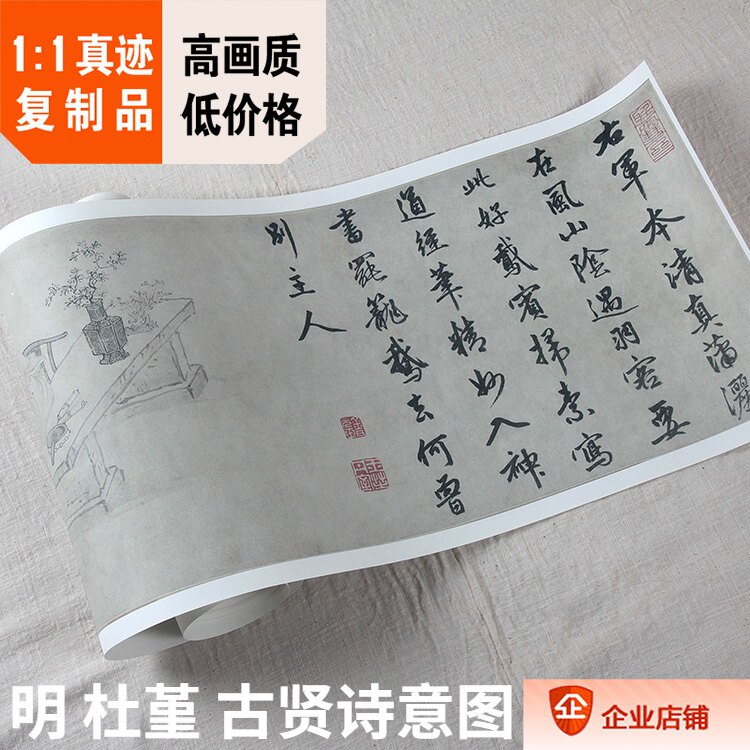 1:1真迹
复制品
高画质
低价格
右軍本清真瀟灑
在風山陰遇羽客要
此好鵞賓掃素寫
道經筆精妙入神
書罷籠鵞去何曾
別主人
明 杜堇 古贤诗意图
企业店铺